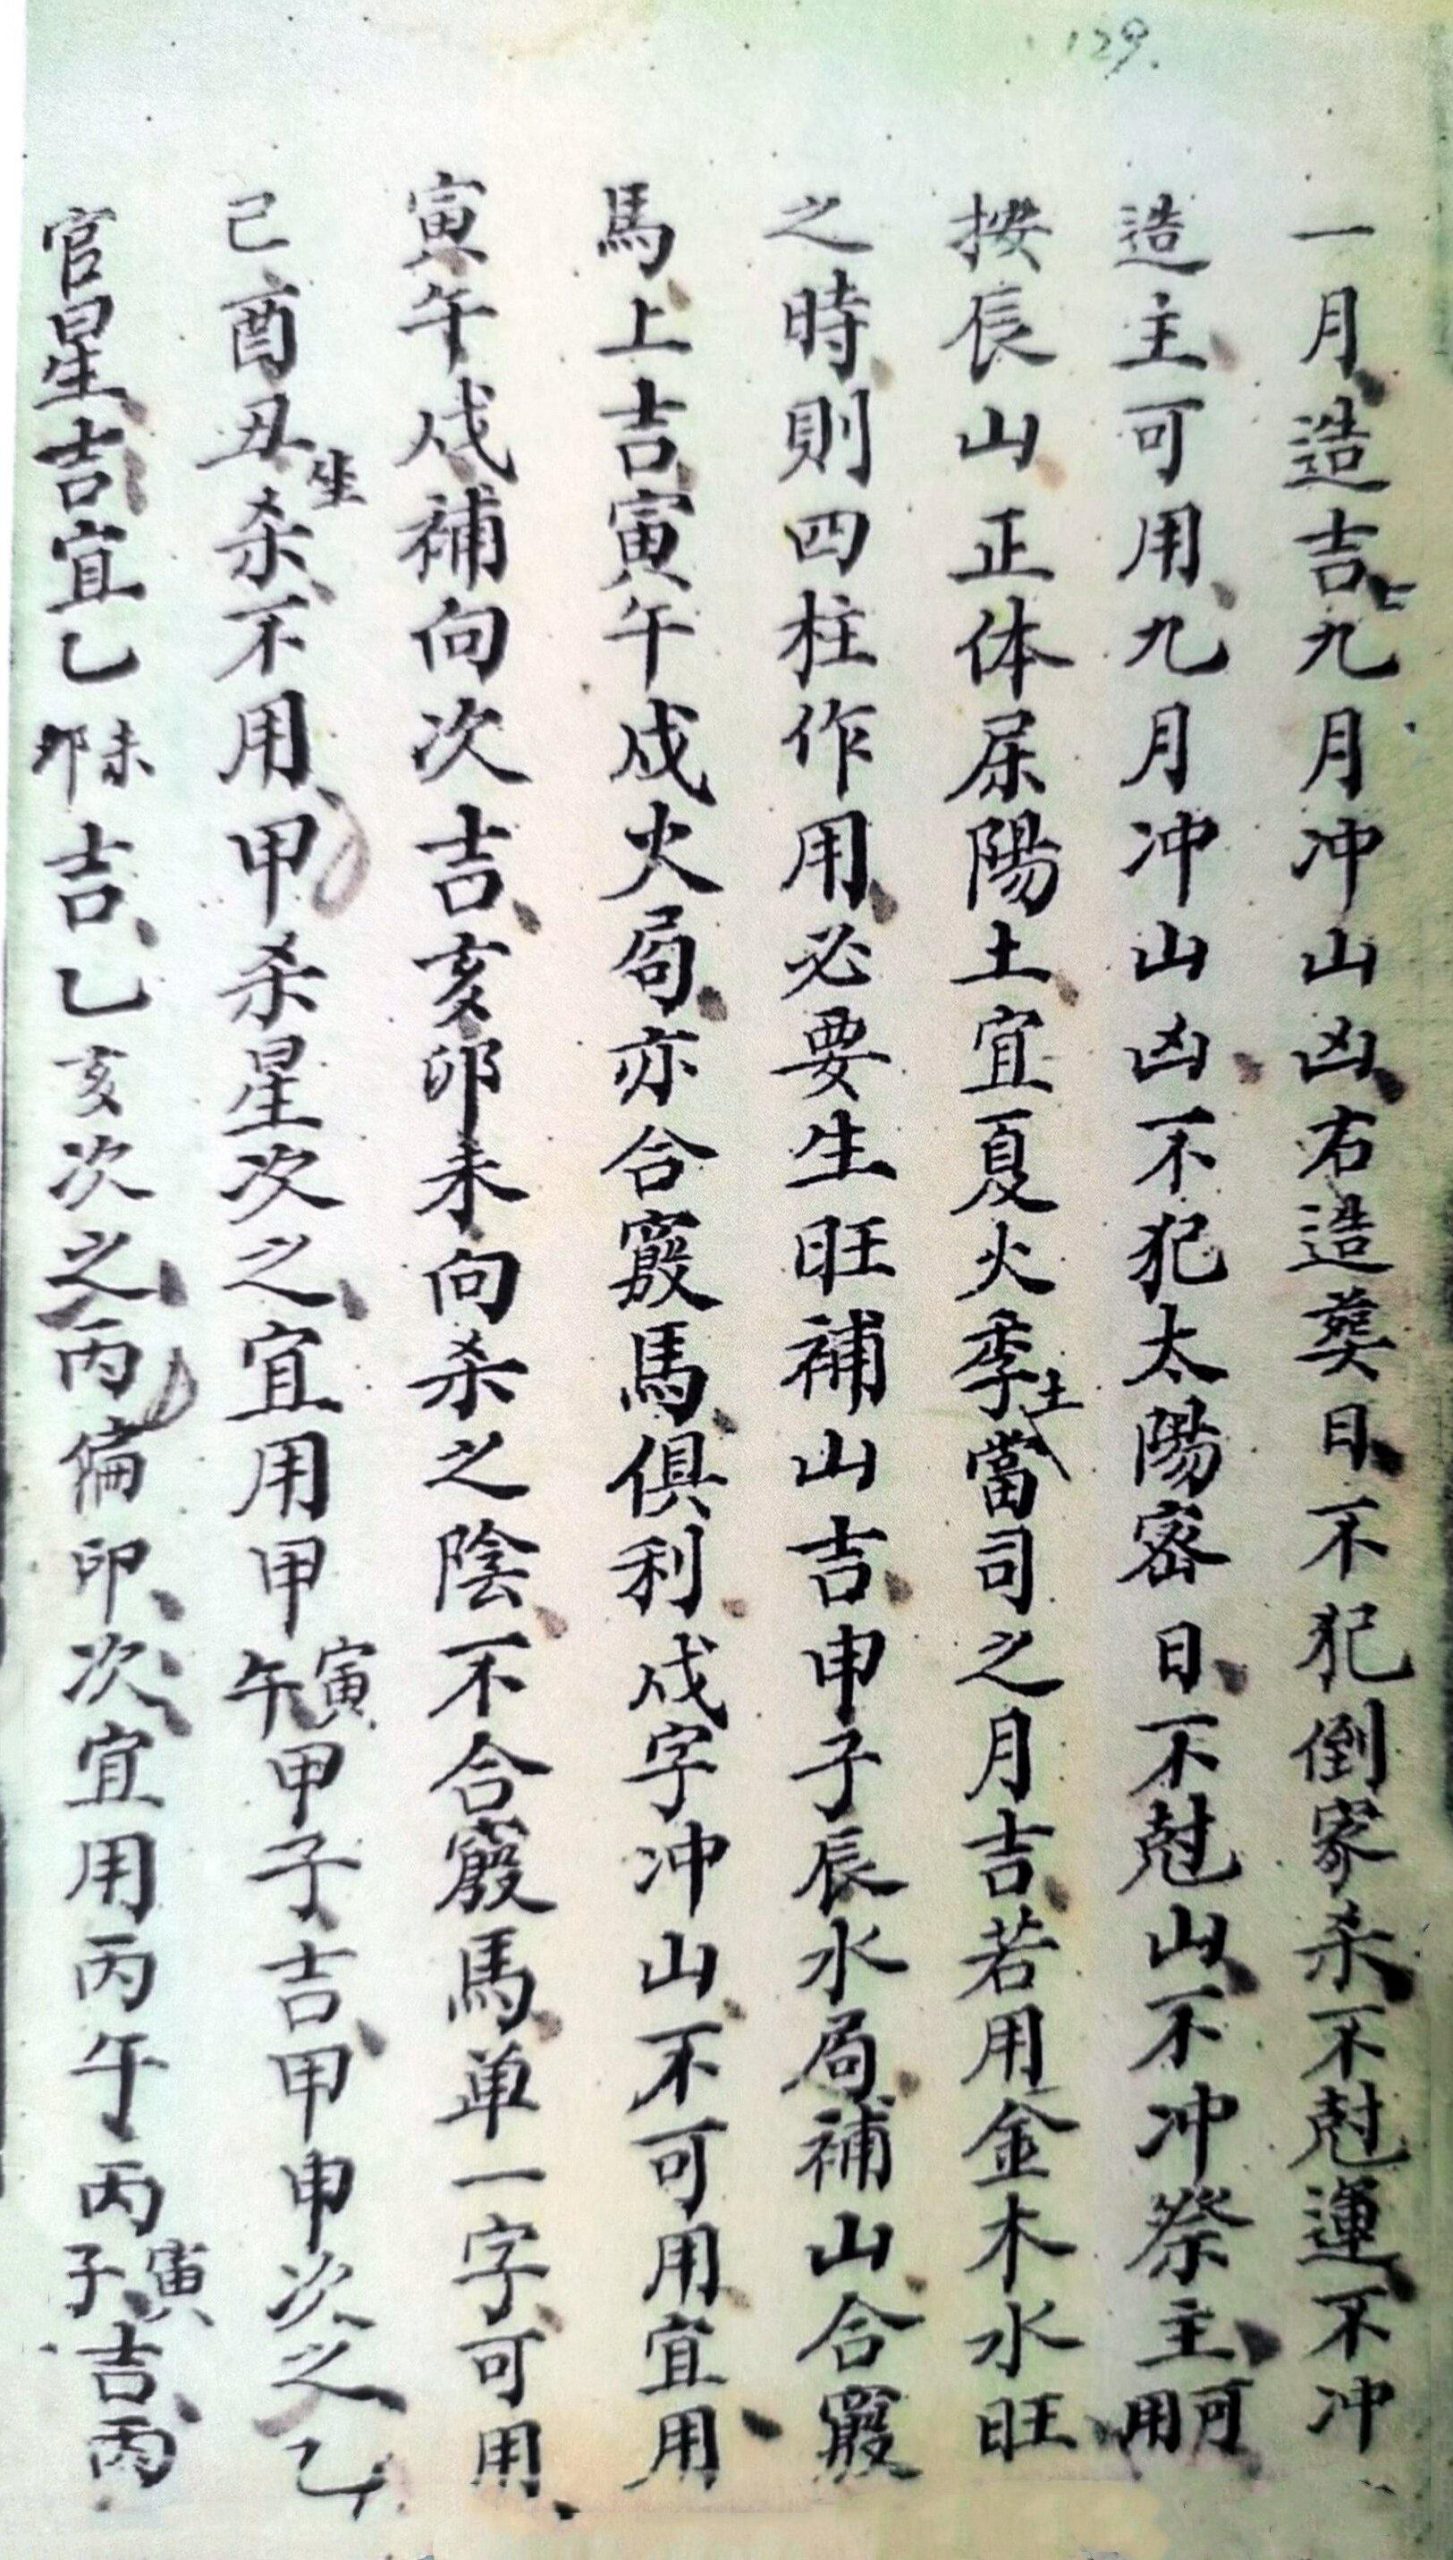 129.
一月造吉七九月冲山凶右造葬日不犯倒家杀不尅運不冲
造主可用九月冲山凶不犯太陽密日不尅山不冲祭主可用
按辰山正体屬陽土宜夏火季土當司之月吉若用金木水旺
之時則四柱作用必要生旺補山吉申子辰水局補山合
馬上吉寅午戍火局亦合馬俱利戍字冲山不可用宜用
寅午戍補向次吉亥卯未向杀之陰不合馬单一字可用
己酉丑坐杀不用甲杀星次之宜用甲寅午甲子吉甲申次之乙
官星吉宜乙未卯吉乙亥次之丙偏印次宜用丙午丙寅子吉丙